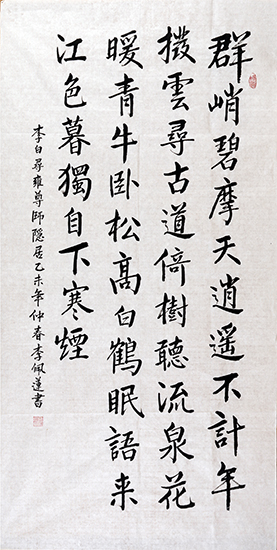 群峭碧摩天逍遥不計年
撥雲尋古道倚樹聽流泉花
暖青牛卧松高白鶴眠語来
江色暮獨自下寒煙
李白尋雍尊師隐居乙未年仲春李佩蓮書